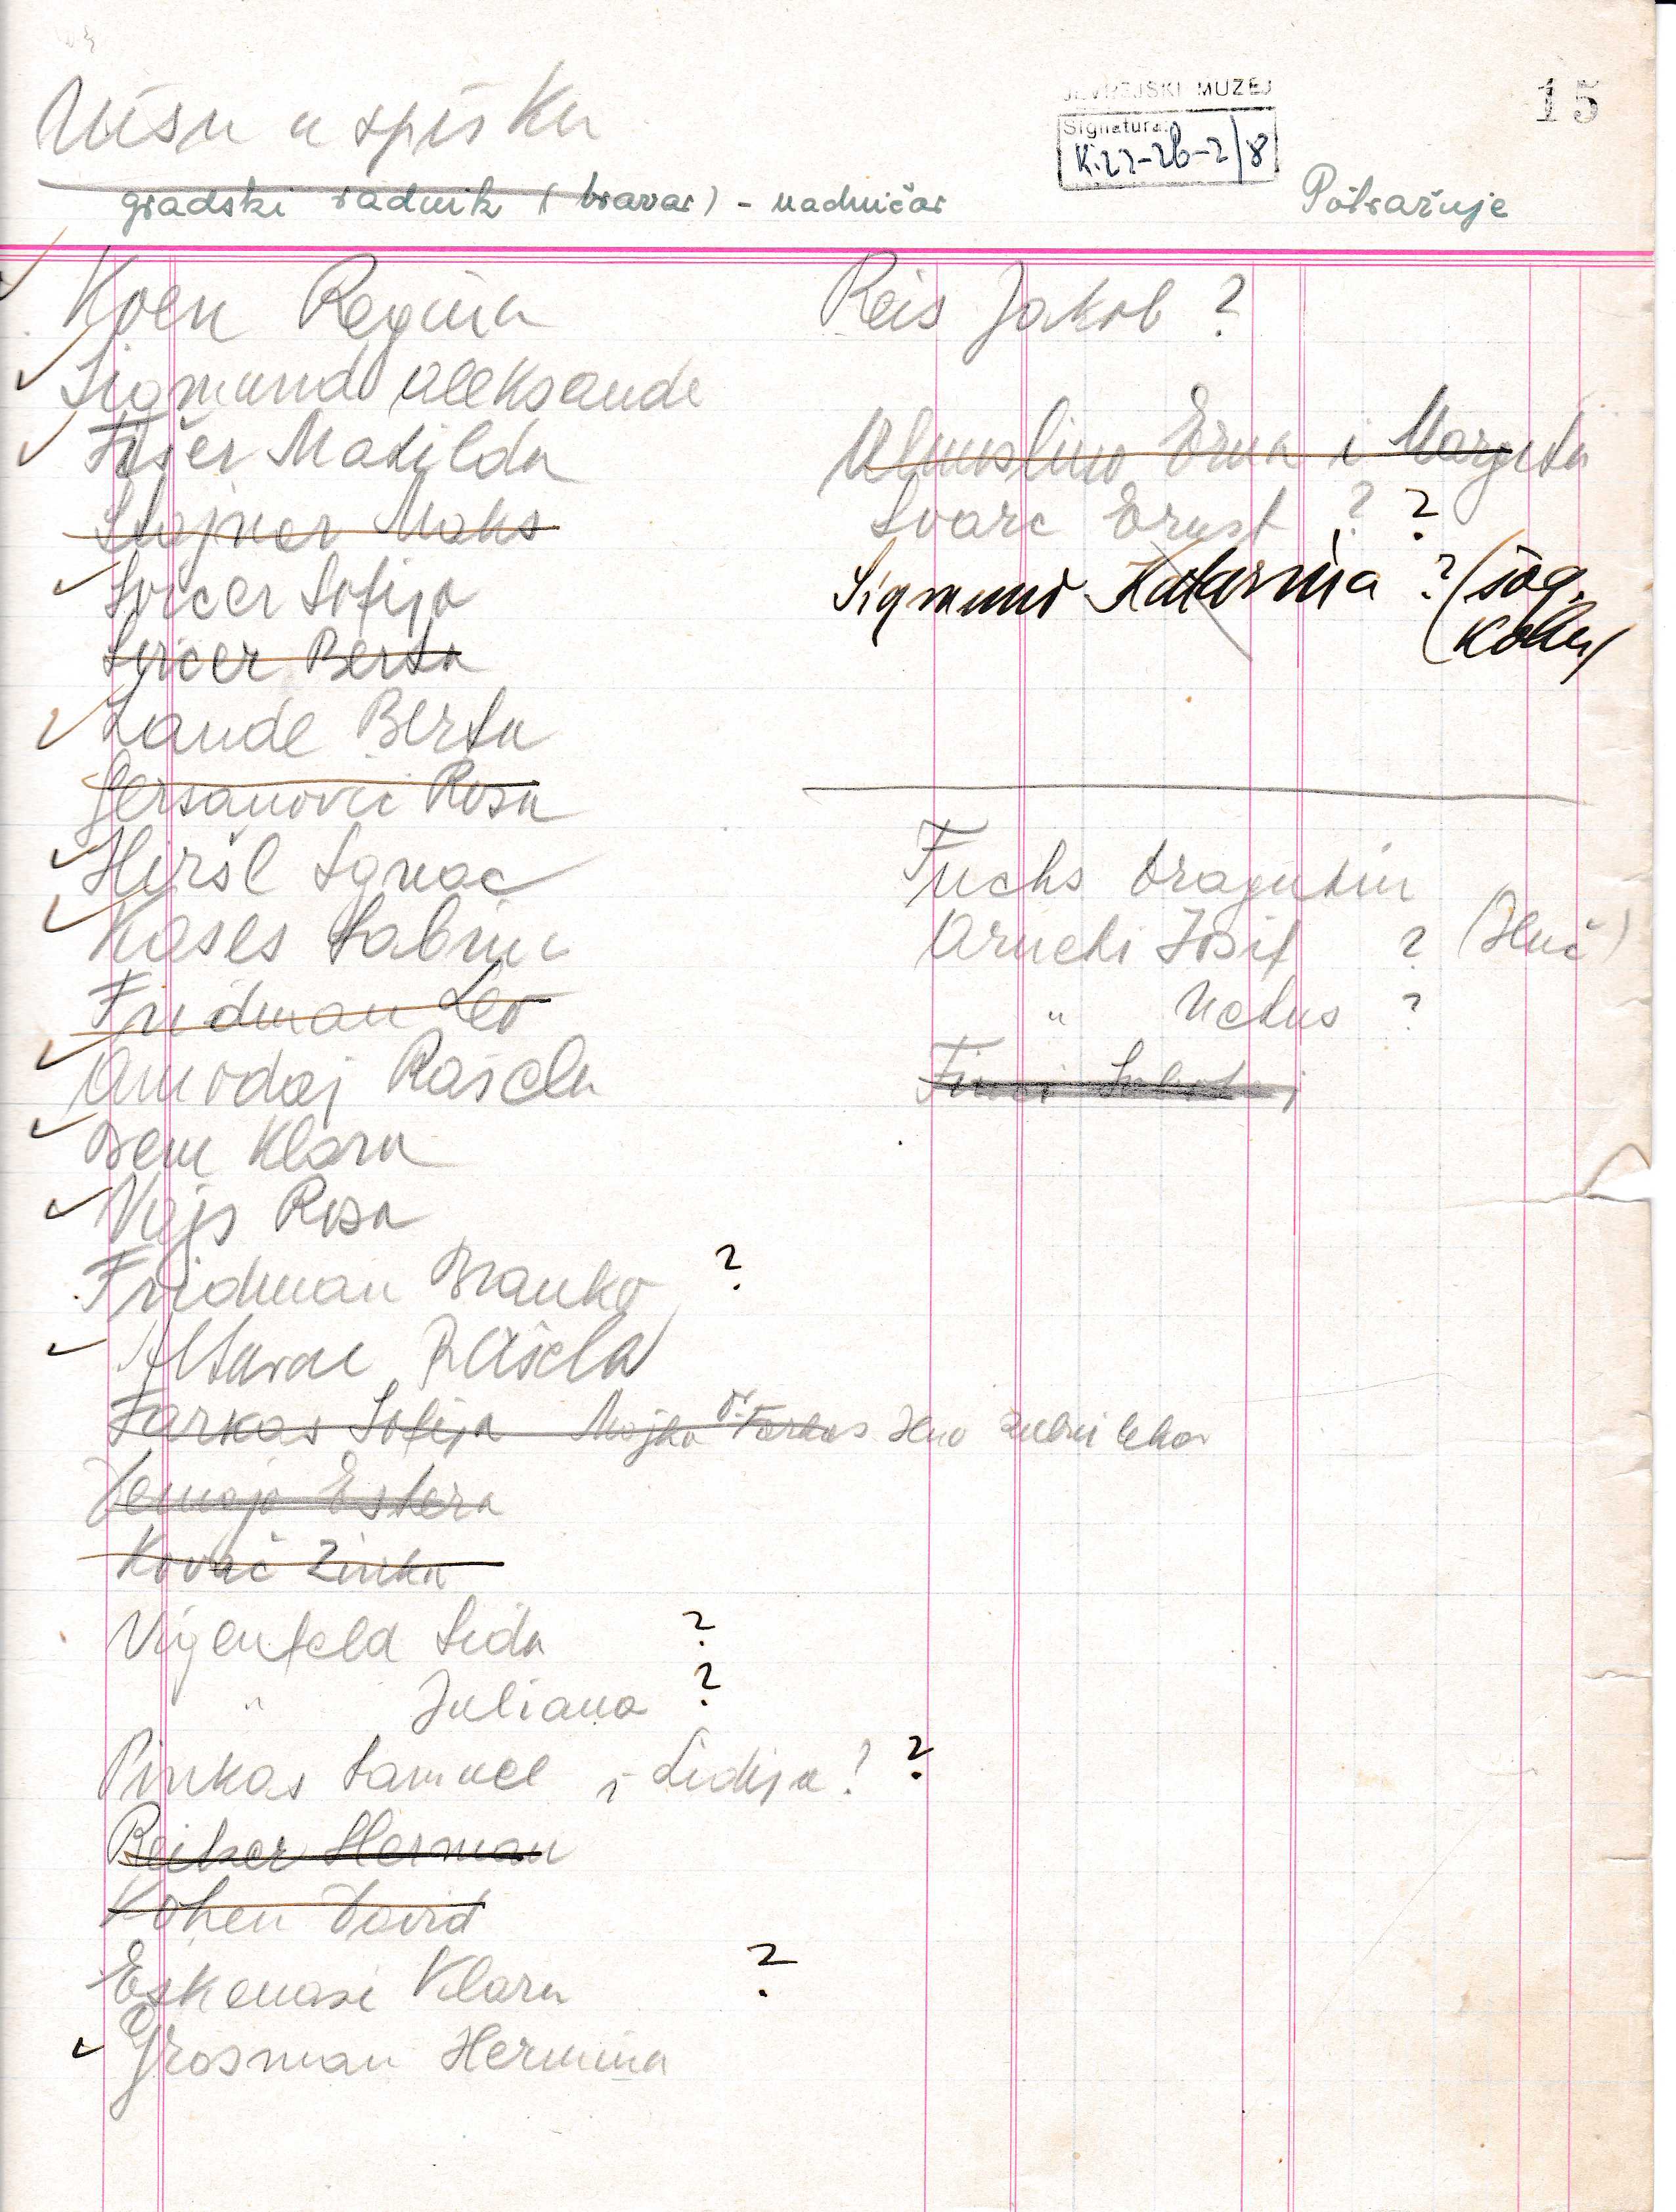 Nisu u spisku
JEVREJSKI MUZEJ
Signatura:
K.22-2b-2/8
15
gradski radnik (bravar) - nadničar
Potražuje
Koen Regina
Sigmund Aleksande
Fišer Matilda
Štajner Maks
Švicer Sofija
Švicer Berta
Lande Berta
Gersanović Rosa
Hiršl Ignac
Kases Sabina
Fridman Leo
Amodaj Rašela
Bem Klara
Vajs Rosa
Fridman Branko ?
Altarac Rašela
Farkas Sofija Majka dr. Farkas zubni lekar
Demajo Estera
Kovač Zinka
Vigenfeld Sida ?
" Juliana ?
Pinkas Samuel i Lidija? ?
Herman
Kohen David
Eskenasi Klara ?
Grosman Hermina
Reis Jakob ?
Erna i Margita
Svarc Ernst ? ?
Sigmund Katarina ? (
Fuchs Dragutin
Josif ?
" ?
Finci